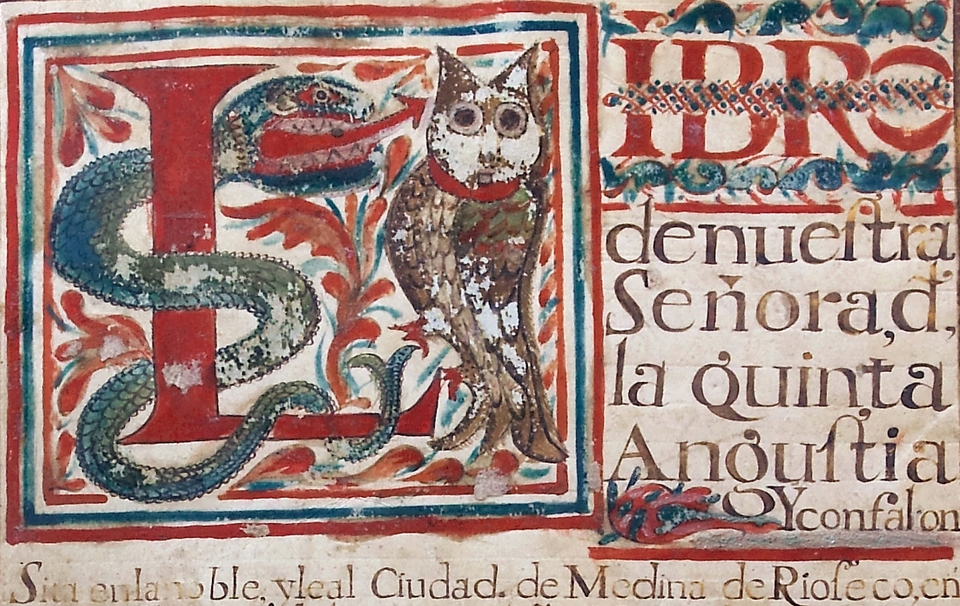 LIBRO
denueſtra
Señora,d,
la quinta
Anguſtia
Yconfalon
Sita enla noble, yleal Ciudad. de Medina de Rioſeco, en